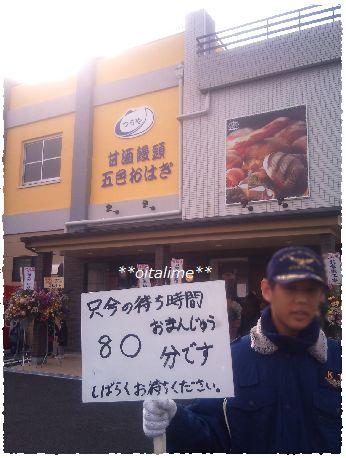 つるや
甘酒饅頭
五色おはぎ
**oitalime**
只今の待ち時間
おまんじゅう
80分です
しばらくお待ちください。
K